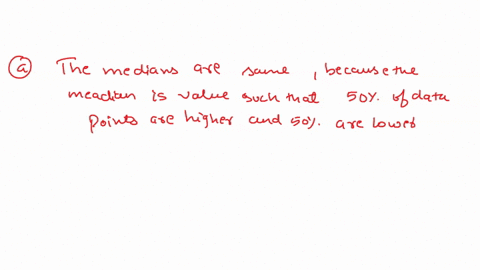 ⓐ The medians are same, because the
meadian is value such that 50% of data
points are higher and 50% are lower